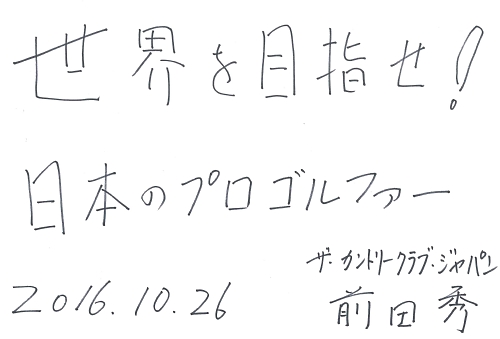 世界を目指せ!
日本のプロゴルファー
ザ・カントリークラブ・ジャパン
2016.10.26
前田秀